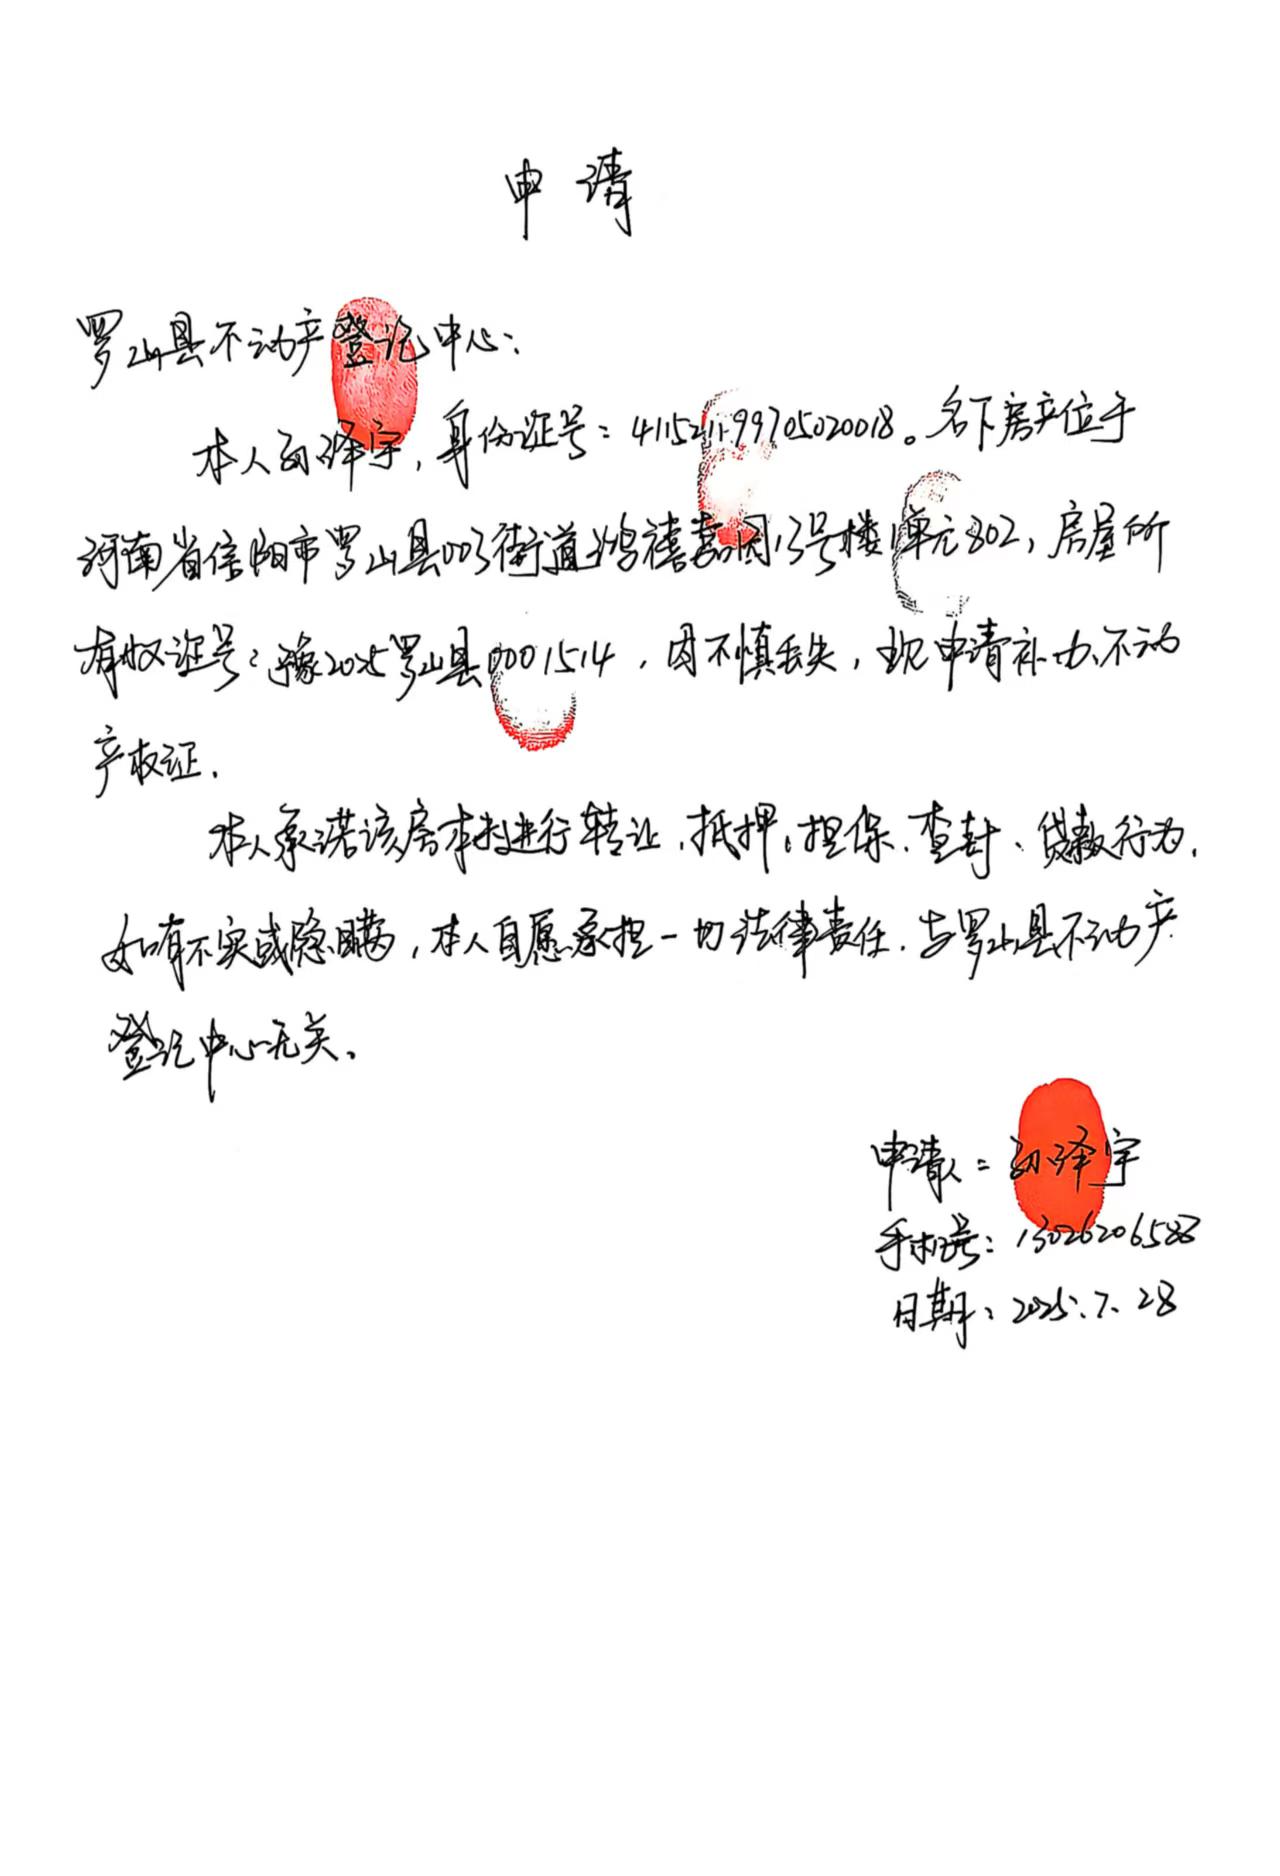 申请
罗山县不动产登记中心:
本人孙泽宇,身份证号:411521199705020018。名下房产位于
河南省信阳市罗山县003街道鸿禧嘉园13号楼1单元802,房屋所
有权证号:豫2025罗山县0001514,因不慎丢失,现申请补办不动
产权证.
本人承诺该房本未进行转让、抵押、担保、查封、贷款行为.
如有不实或隐瞒,本人自愿承担一切法律责任.与罗山县不动产
登记中心无关。
申请人:孙泽宇
手机号:13026206583
日期:2025.7.28